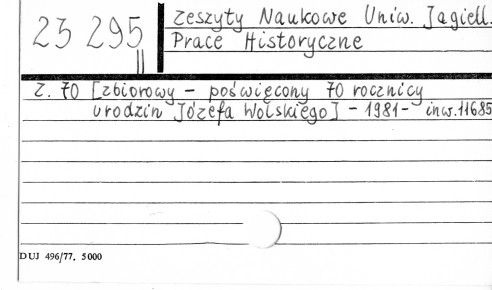 23 295
II
Zeszyty Naukowe Uniw. Jagiell.
Prace Historyczne
Z. 70 [zbiorowy – poświęcony 70 rocznicy
urodzin Józefa Wolskiego] – 1981 – inw. 11685
DUJ 496/77. 5000